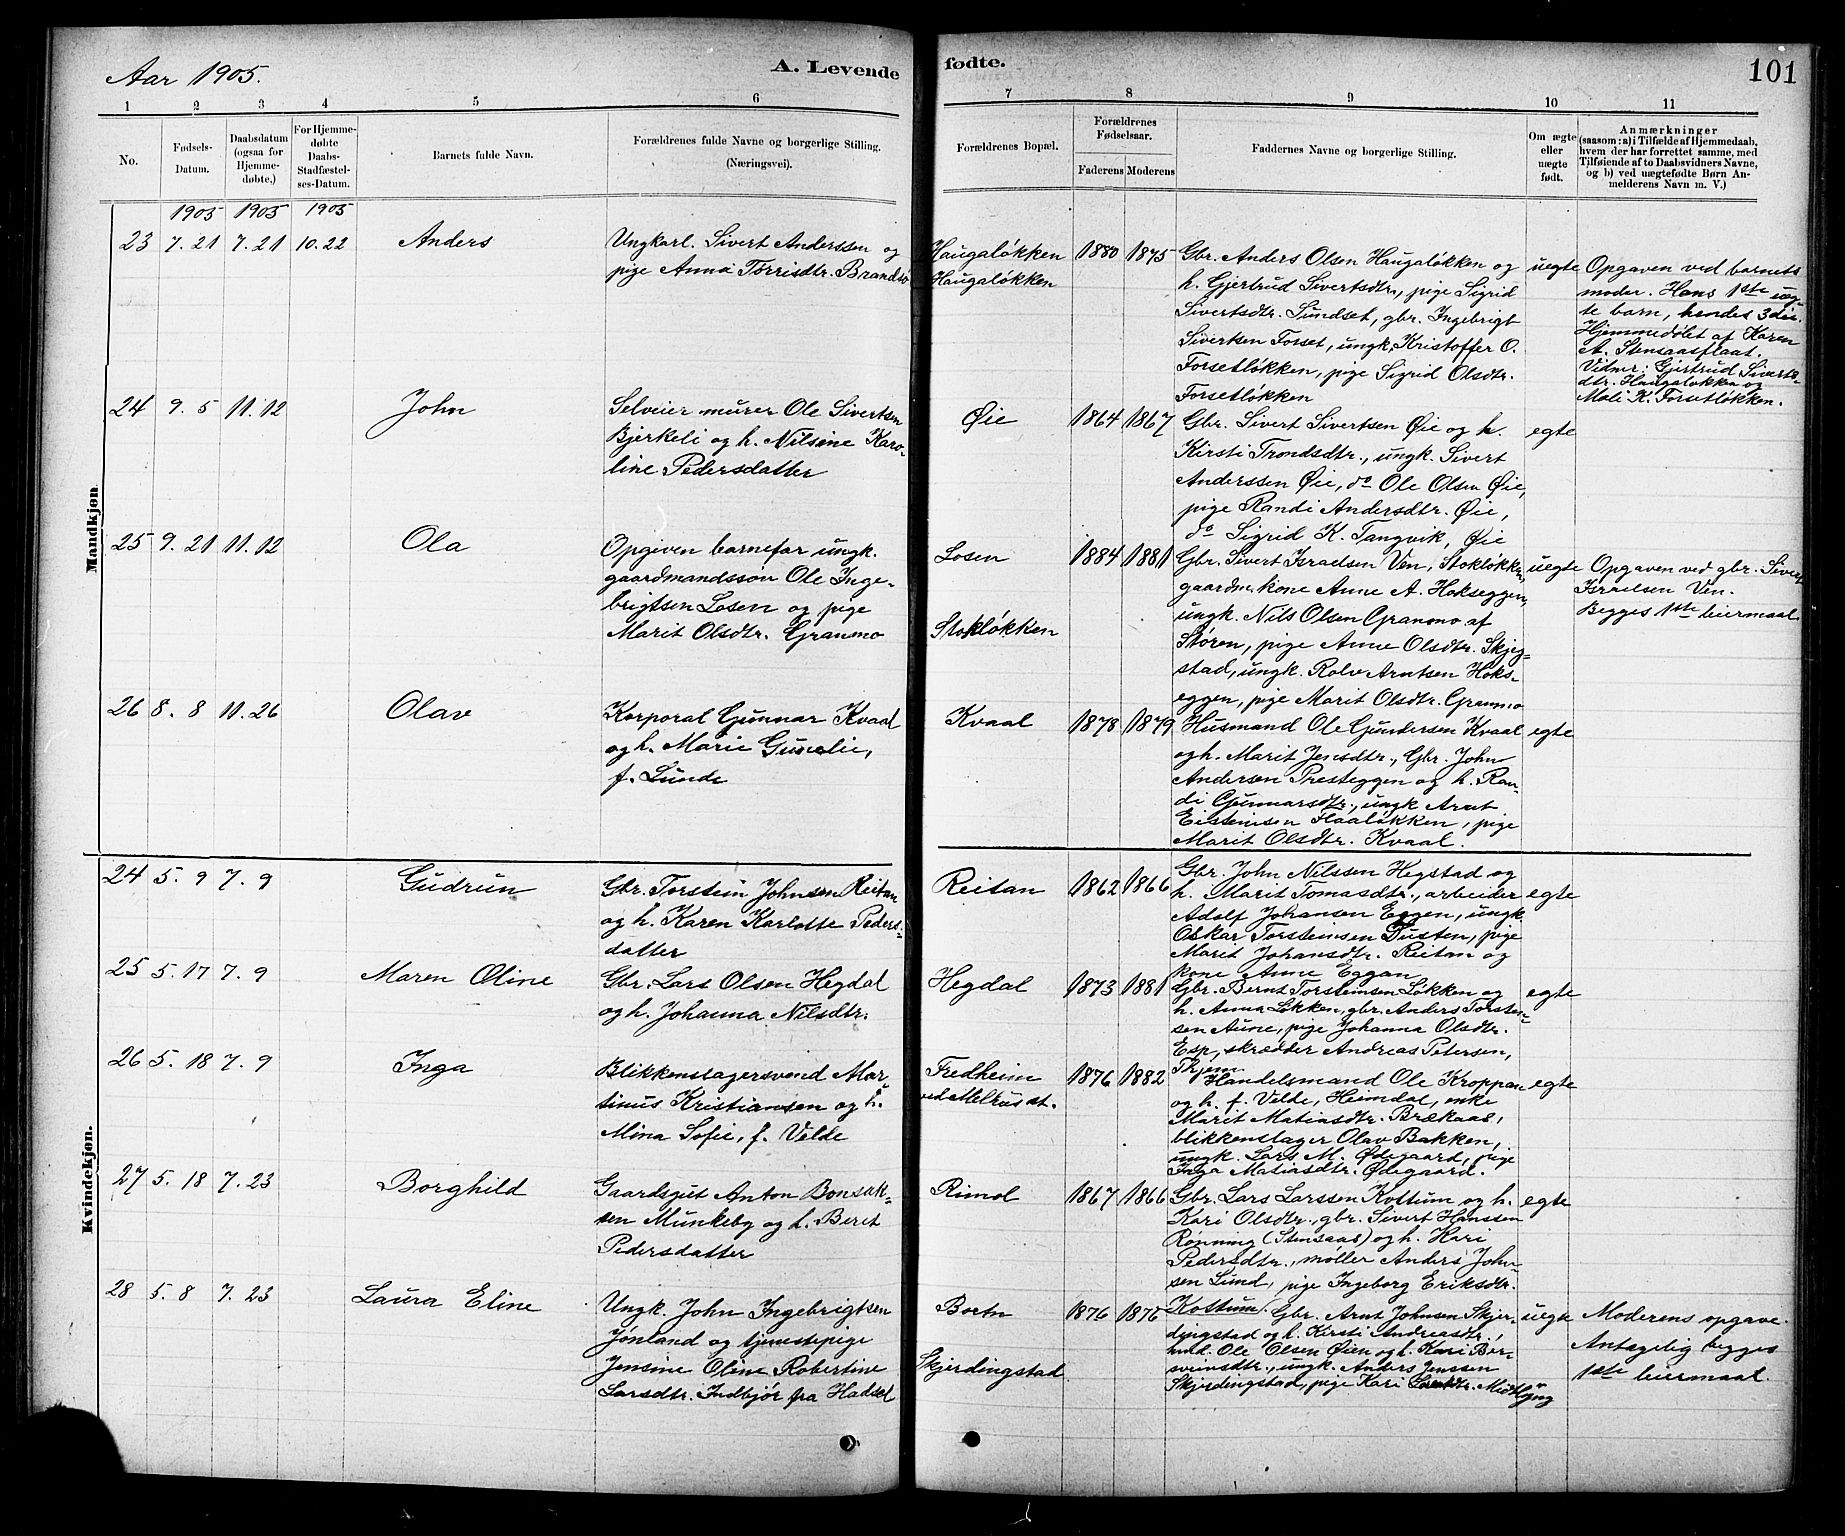 Aar 1905.
A. Levende
fødte.
101
1 2 3 4 5 6 7 8 9 10 11
No.
Fødsels-
Datum.
Daabsdatum
(ogsaa for
Hjemme-
døbte,)
For Hjemme-
døbte
Daabs-
Stadfæstel-
ses-Datum.
Barnets fulde Navn.
Forældrenes fulde Navne og borgerlige Stilling.
(Næringsvei).
Forældrenes Bopæl.
Forældrenes
Fødselsaar.
Faderens Moderens
Faddernes Navne og borgerlige Stilling.
Om ægte
eller
uægte
født.
Anmærkninger
(saasom: a) i Tilfælde af Hjemmedaab,
hvem der har forrettet samme, med
Tilføiende af to Daabsvidners Navne,
og b) ved uægtefødte Børn An-
melderens Navn m. V.)
Mandkjøn.
1905 1905 1905
23 7. 21 7. 21 10. 22 Anders
Ungkarl. Sivert Anderssen og
pige Anna Tørrisdtr. Brandsø
Haugaløkken
Haugaløkken
1880 1875
Gbr. Anders Olsen Haugaløkken og
h. Gjertrud Sivertsdtr., pige Sigrid
Sivertsdtr. Sundset, gbr. Ingebrigt
Sivertsen Forset, ungk. Kristoffer O.
Forsetløkken, pige Sigrid Olsdtr.
Forsetløkken
uegte
Opgaven ved barnets
moder. Hans 1ste ueg-
te barn, hendes 3die.
Hjemmedøbt af Karen
A. Stensaasflaat.
Vidner: Gjertrud Siverts-
dtr. Haugaløkken og
Mali K. Forsetløkken.
24 9. 5 11. 12 John
Selveier murer Ole Sivertsen
Bjerkeli og h. Nilsine Karo-
line Pedersdatter
Øie
1864 1867
Gbr. Sivert Sivertsen Øie og h.
Kirsti Trondsdtr., ungk. Sivert
Anderssen Øie, do Ole Olsen Øie,
pige Randi Andersdtr. Øie,
do Sigrid K. Tangvik, Øie
egte
25 9. 21 11. 12 Ola
Opgiven barnefar ungk.
gaardmandssøn Ole Inge-
brigtsen Losen og pige
Marit Olsdtr. Granmo
Losen
Stokløkken
1884 1881
Gbr. Sivert Israelsen Ven, Stokløkken,
gaardm. kone Anne A. Hokseggen,
ungk. Nils Olsen Granmo af
Støren, pige Anne Olsdtr. Skjeg-
stad, ungk. Rolv Arntsen Hoks-
eggen, pige Marit Olsdtr. Granmo
uegte
Opgaven ved gbr. Sivert
Israelsen Ven.
Begges 1ste leiermaal.
26 8. 8 11. 26 Olav
Korporal Gunnar Kvaal
og h. Marie Gunelie,
f. Lunde
Kvaal
1878 1879
Husmand Ole Gundersen Kvaal
og h. Marit Jensdtr., Gbr. John
Andersen Presteggen og h. Ran-
di Gunnarsdtr., ungk Arnt
Eistensen Haaløkken, pige
Marit Olsdtr. Kvaal.
egte
Kvindekjøn.
24 5. 9 7. 9 Gudrun
Gbr. Torstein Johnsen Reitan
og h. Karen Karlotte Peders-
datter
Reitan
1862 1866
Gbr. John Nilssen Hegstad og
h. Marit Tomasdtr., arbeider
Adolf Johansen Eggen, ungk
Oskar Torsteinsen Dusten, pige
Marit Johansdtr. Reitan og
kone Anne Eggan
egte
25 5. 17 7. 9 Maren Oline
Gbr. Lars Olsen Hegdal
og h. Johanna Nilsdtr.
Hegdal
1873 1881
Gbr. Bernt Torsteinsen Løkken og
h. Anna Løkken, gbr. Anders Torstein-
sen Aune, pige Johanna Olsdtr.
Esp, skrædder Andreas Petersen,
Thjem
egte
26 5. 18 7. 9 Inga
Blikkenslagersvend Mar-
tinus Kristiansen og h.
Mina Sofie, f. Velde
Fredheim
ved Melhus st.
1876 1882
Handelsmand Ole Kroppan
og h. f. Velde, Heimdal, enke
Marit Matiasdtr. Brækaas,
blikkenslager Olav Bakken,
ungk. Lars M. Ødegaard, pige
Inga Matiasdtr. Ødegaard.
egte
27 5. 18 7. 23 Borghild
Gaardsgut Anton Bonsak-
sen Munkeby og h. Beret
Pedersdatter
Rimol
1867 1866
Gbr. Lars Larssen Kottum og h.
Kari Olsdtr., gbr. Sivert Hanssen
Rønning (Stensaas) og h. Kari
Pedersdtr., møller Anders John-
sen Lund, pige Ingeborg Eriksdtr.
Kottum.
egte
28 5. 8 7. 23 Laura Eline
Ungk. John Ingebrigtsen
Jønland og tjenestepige
Jensine Oline Robertine
Larsdtr. Indbjør fra Hadsel
Bortn
Skjerdingstad
1876 1875
Gbr. Arnt Johnsen Skjer-
dingstad og h. Kirsti Andreasdtr.,
hmd. Ole Olsen Øien og h. Kari Ber-
sveinsdtr., ungk. Anders Jenssen
Skjerdingstad, pige Kari Larsdtr. Midtlyng
uegte
Moderens opgave.
Antagelig begges
1ste leiermaal.